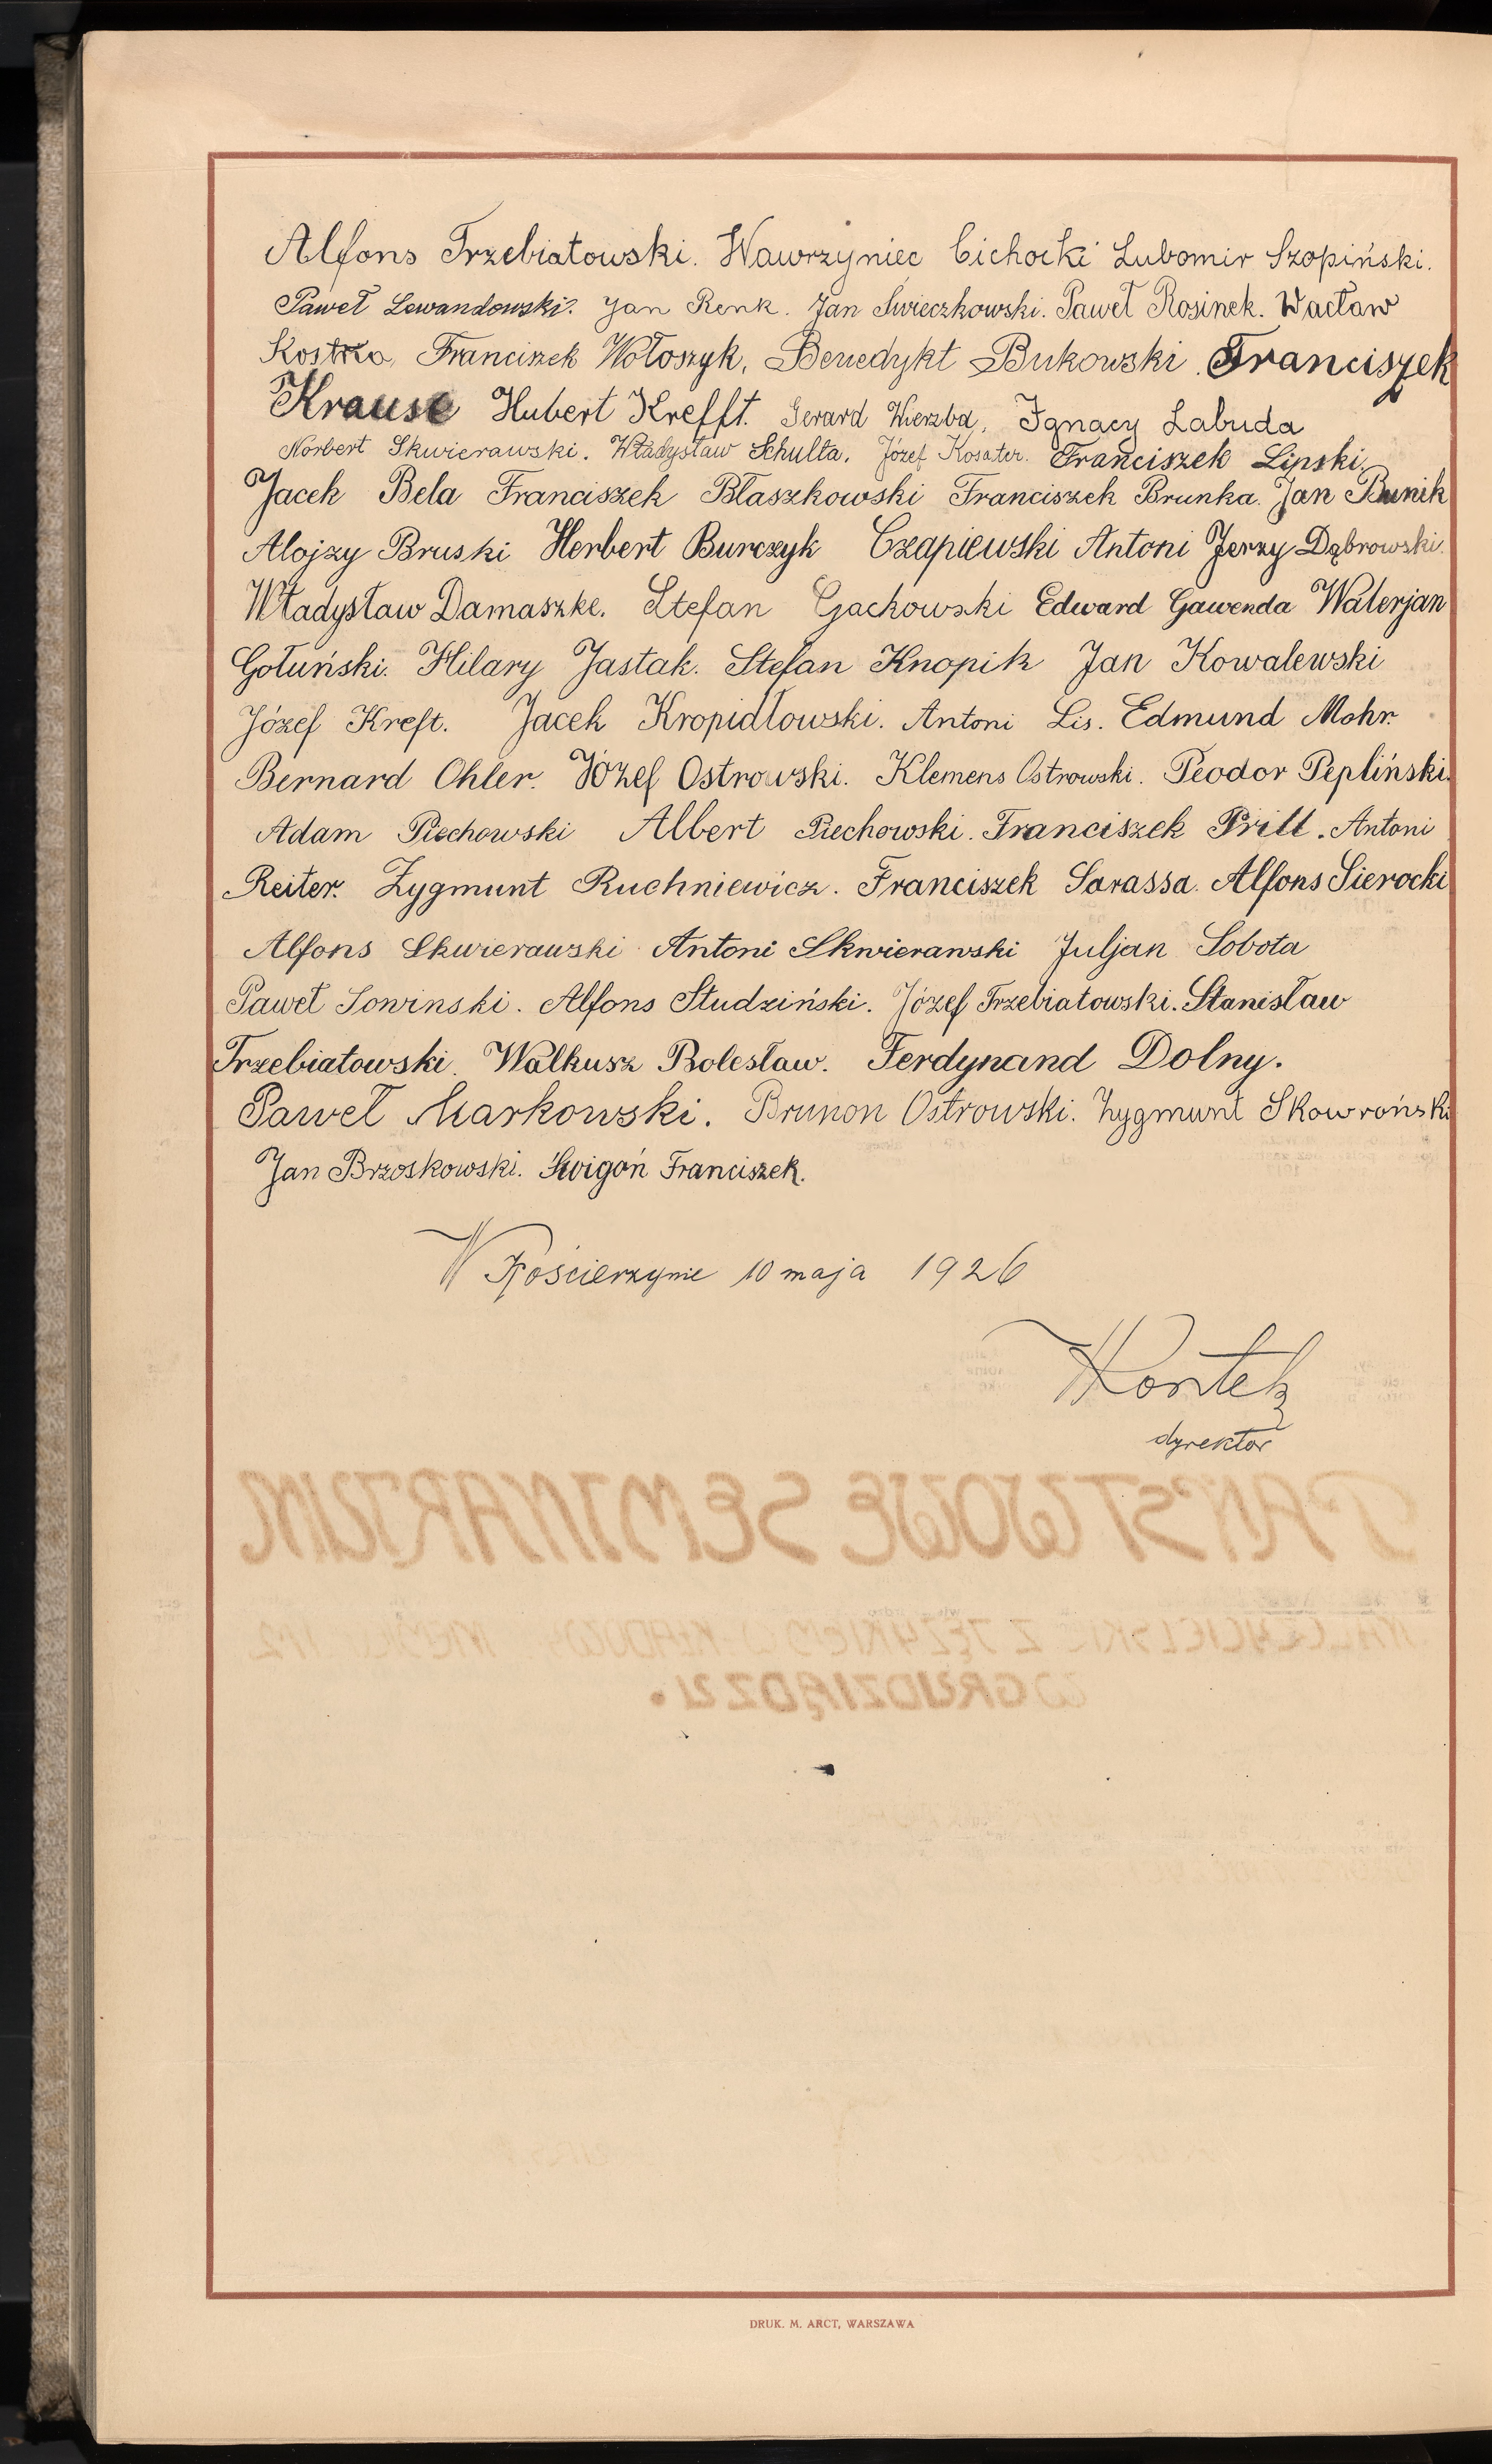 Alfons Trzebiatowski. Wawrzyniec Cichocki Lubomir Szopiński.
Paweł Lewandowski. Jan Renk. Jan Świeczkowski. Paweł Rosinek. Wacław
Kostka, Franciszek Wołoszyk, Benedykt Bukowski. Franciszek
Krause Hubert Krefft. Gerard Wierzba, Ignacy Labuda
Norbert Skwierawski. Władysław Schulta. Józef Kosater. Franciszek Lipski.
Jacek Bela Franciszek Błaszkowski Franciszek Brunka. Jan Bunik
Alojzy Bruski Herbert Burczyk Czapiewski Antoni Jerzy Dąbrowski.
Władysław Damaszke. Stefan Gackowski Edward Gawenda Walerjan
Gołuński. Hilary Jastak. Stefan Knopik Jan Kowalewski
Józef Kreft. Jacek Kropidłowski. Antoni Lis. Edmund Mohr.
Bernard Ohler. Józef Ostrowski. Klemens Ostrowski. Teodor Pepliński.
Adam Piechowski Albert Piechowski. Franciszek Prill. Antoni
Reiter. Zygmunt Ruchniewicz. Franciszek Sarassa. Alfons Sierocki
Alfons Skwierawski Antoni Skwierawski Juljan Sobota
Paweł Sowinski. Alfons Studziński. Józef Trzebiatowski. Stanisław
Trzebiatowski. Walkusz Bolesław. Ferdynand Dolny.
Paweł Markowski. Brunon Ostrowski. Zygmunt Skowroński
Jan Brzoskowski. Świgoń Franciszek.
W Kościerzynie 10 maja 1926
dyrektor
DRUK. M. ARCT, WARSZAWA